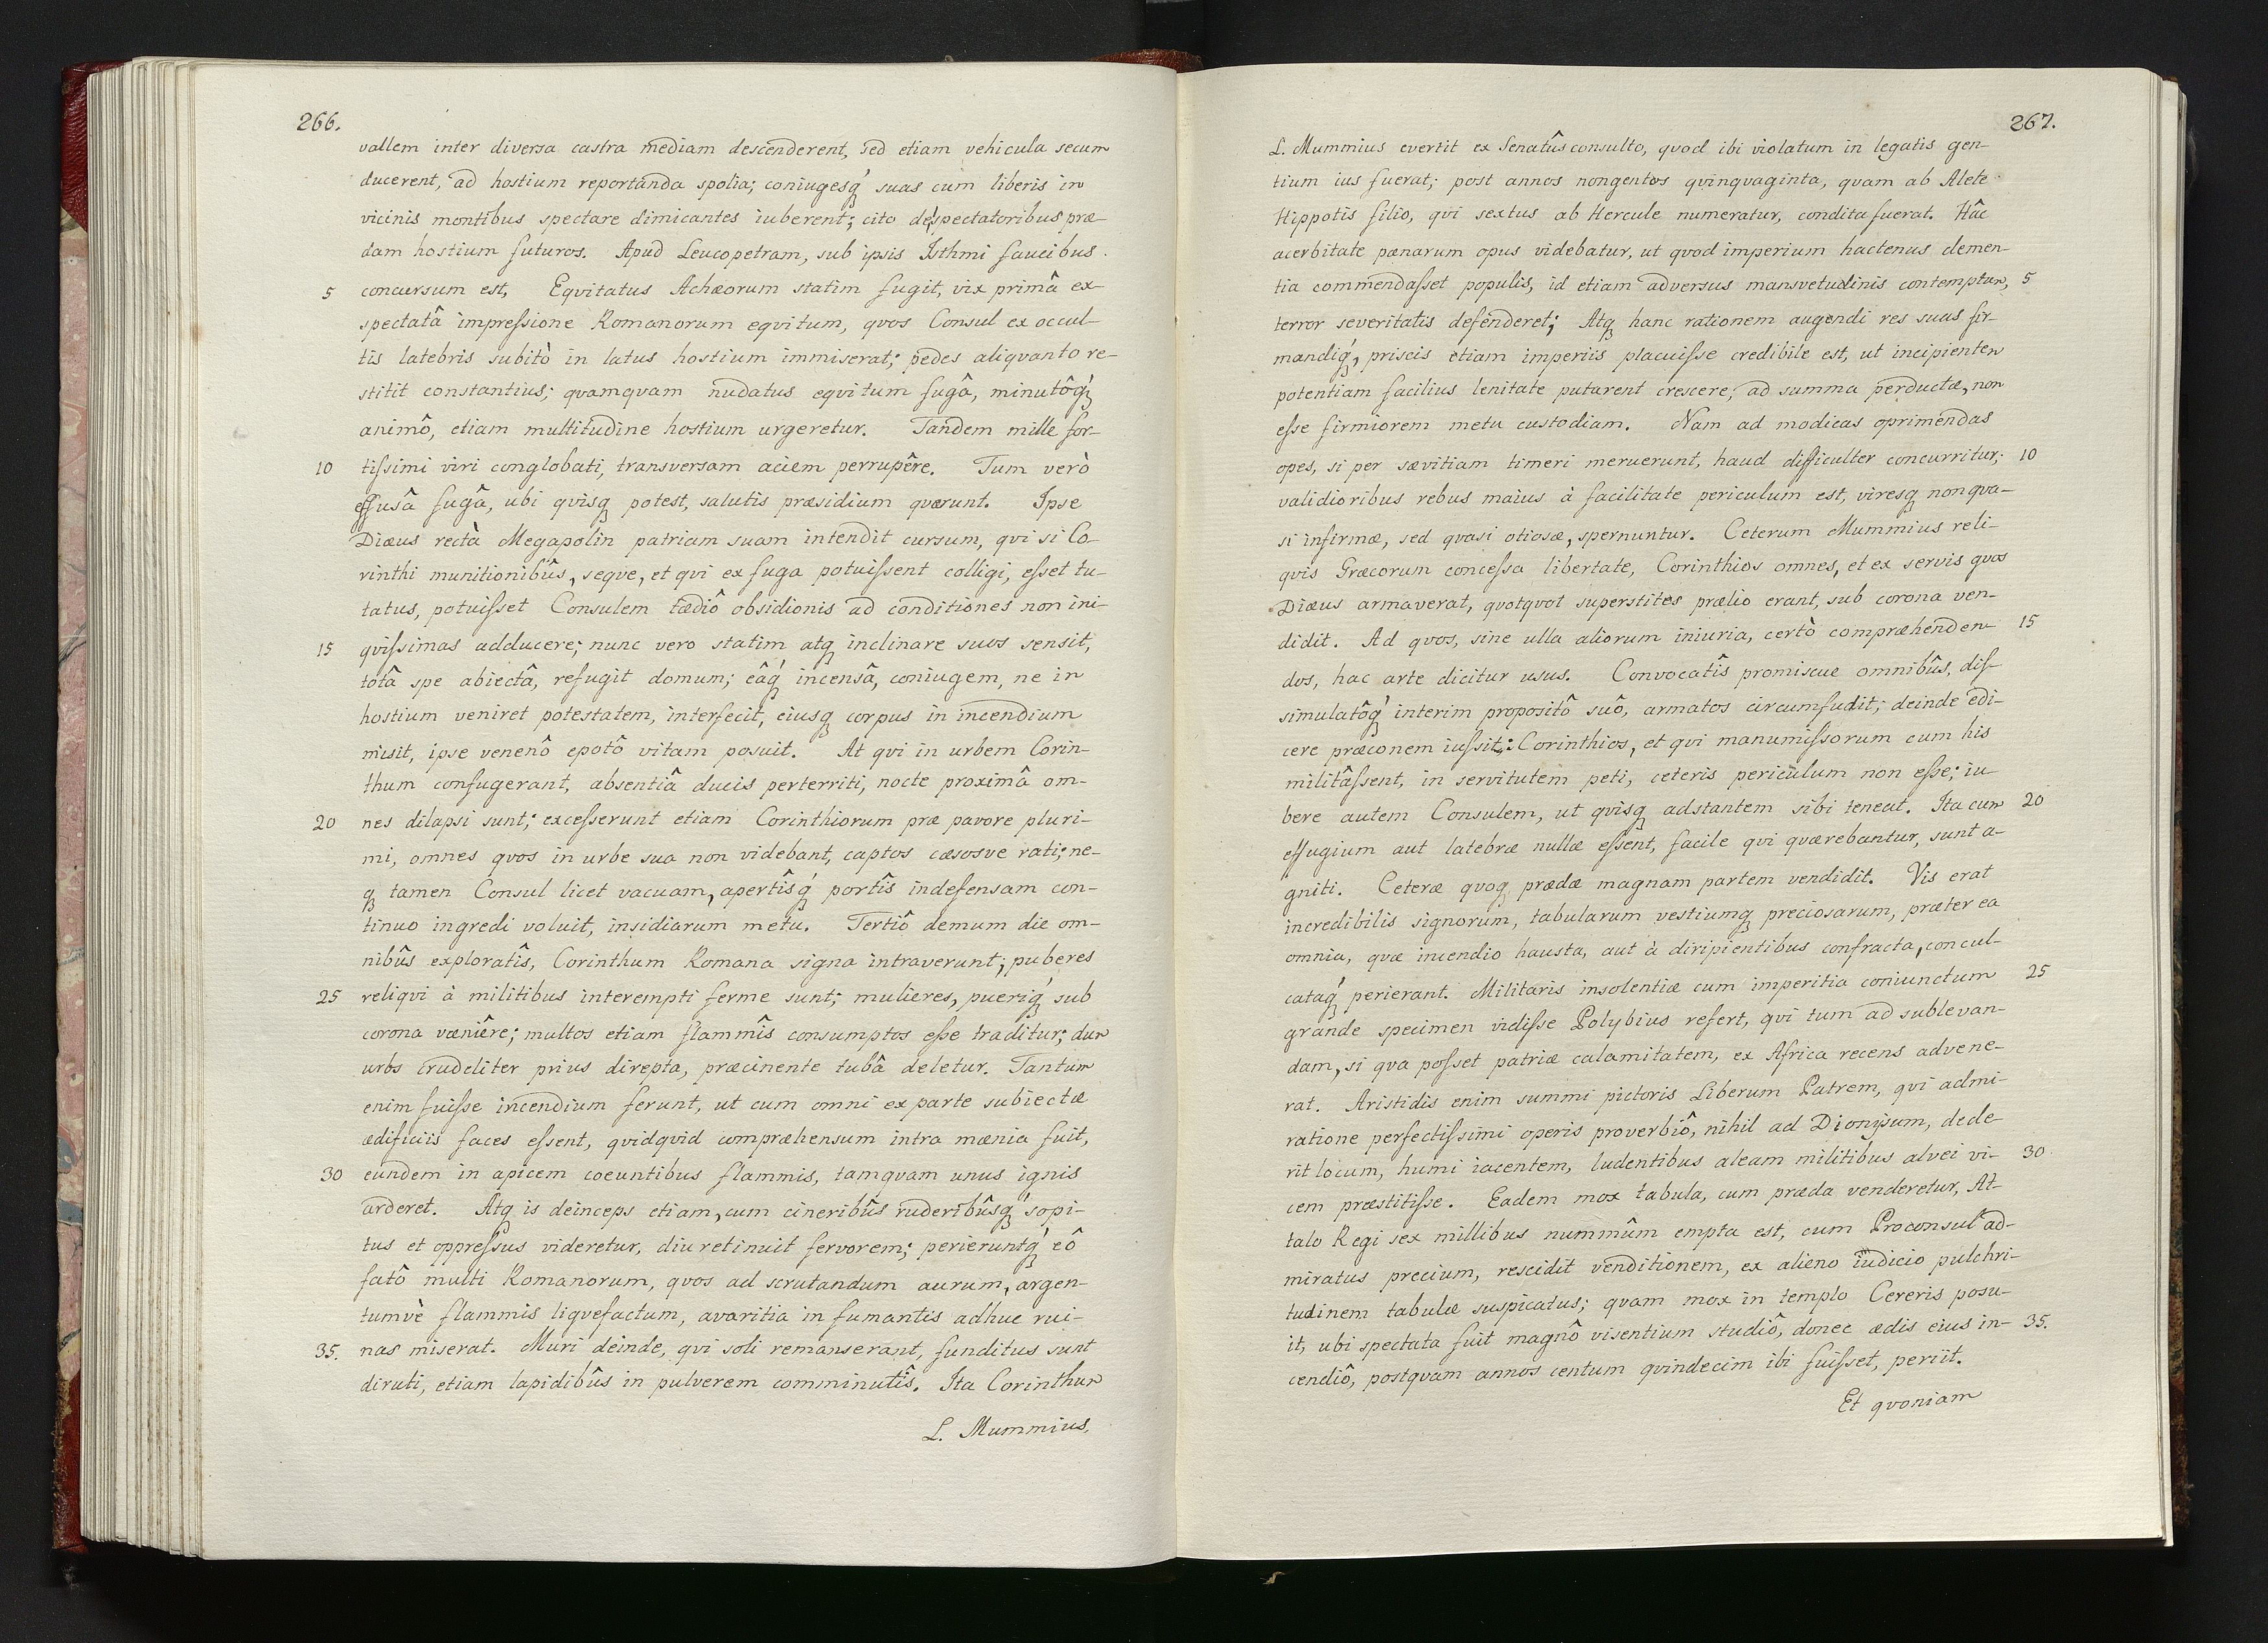 266.
vallem inter diversa castra mediam descenderent, sed etiam vehicula secum
ducerent, ad hostium reportanda spolia; coniugesq́ suas cum liberis in
vicinis montibus spectare dimicantes iuberent; cito de spectatoribus præ-
dam hostium futuros. Apud Leucopetram, sub ipsis Isthmi faucibus
5 concursum est. Eqvitatus Achæorum statim fugit, vix primâ ex-
spectatâ impressione Romanorum eqvitum, qvos Consul ex occul-
tis latebris subitò in latus hostium immiserat; pedes aliqvanto re-
stitit constantius; qvamqvam nudatus eqvitum fugâ, minutôq́
animô, etiam multitudine hostium urgeretur. Tandem mille for-
10 tissimi viri conglobati, transversam aciem perrupêre. Tum verò
effusâ fugâ, ubi qvisq potest, salutis præsidium qværunt. Ipse
Diæus rectà Megapolin patriam suam intendit cursum, qvi si Co-
rinthi munitionibûs, seqve, et qvi ex fuga potuissent colligi, esset tu-
tatus, potuisset Consulem tædiô obsidionis ad conditiones non ini-
15 qvissimas adducere; nunc vero statim atq inclinare suos sensit,
totâ spe abiectâ, refugit domum; eâq́ incensâ, coniugem, ne in
hostium veniret potestatem, interfecit, eiusq corpus in incendium
misit, ipse venenô epotô vitam posuit. At qvi in urbem Corin-
thum confugerant, absentiâ ducis perterriti, nocte proximâ om-
20 nes dilapsi sunt; excesserunt etiam Corinthiorum præ pavore pluri-
mi, omnes qvos in urbe sua non videbant, captos cæsosve rati; ne-
q tamen Consul licet vacuam, apertîsq́ portîs indefensam con-
tinuo ingredi voluit, insidiarum metu. Tertiô demum die om-
nibûs exploratîs, Corinthum Romana signa intraverunt; puberes
25 reliqvi à militibus interempti ferme sunt; mulieres, pueriq́ sub
corona væniêre; multos etiam flammîs consumptos esse traditur; dum
urbs crudeliter prius direpta, præcinente tubâ deletur. Tantum
enim fuisse incendium ferunt, ut cum omni ex parte subiectæ
ædificiis faces essent, qvidqvid compræhensum intra mænia fuit,
30 eundem in apicem coeuntibus flammis, tamqvam unus ignis
arderet. Atq is deinceps etiam, cum cineribûs ruderibûsq́ sopi-
tus et oppressus videretur, diu retinuit fervorem; perieruntq́ eô
fatô multi Romanorum, qvos ad scrutandum aurum, argen-
tumvè flammis liqvefactum, avaritia in fumantis adhuc rui-
35. nas miserat. Muri deinde, qvi soli remanserant, funditus sunt
diruti, etiam lapidibûs in pulverem comminutîs. Ita Corinthum
L. Mummius.
267.
L. Mummius evertit ex Senatûs consulto, qvod ibi violatum in legatis gen-
tium ius fuerat; post annos nongentos qvinqvaginta, qvam ab Alete
Hippotis filio, qvi sextus ab Hercule numeratur, condita fuerat. Hâc
acerbitate pænarum opus videbatur, ut qvod imperium hactenus clemen-
tia commendasset populis, id etiam adversus mansvetudinis contemptum, 5
terror severitatis defenderet; Atq hanc rationem augendi res suas fir-
mandiq́, priscis etiam imperiis placuisse credibile est, ut incipientem
potentiam facilius lenitate putarent crescere, ad summa perductæ, non
esse firmiorem metu custodiam. Nam ad modicas oprimendas
opes, si per sævitiam timeri meruerunt, haud difficulter concurritur; 10
validioribus rebus maius à facilitate periculum est, viresq non qva-
si infirmæ, sed qvasi otiosæ, spernuntur. Ceterum Mummius reli-
qvis Græcorum concessa libertate, Corinthios omnes, et ex servis qvos
Diæus armaverat, qvotqvot superstites prælio erant, sub corona ven-
didit. Ad qvos, sine ulla aliorum iniuria, certò compræhenden- 15
dos, hac arte dicitur usus. Convocatîs promiscue omnibûs, dis-
simulatôq́ interim propositô suô, armatos circumfudit; deinde edi-
cere præconem iussit: Corinthios, et qvi manumissorum cum his
militâssent, in servitutem peti, ceteris periculum non esse; iu-
bere autem Consulem, ut qvisq adstantem sibi teneat. Ita cum 20
effugium aut latebræ nullæ essent, facile qvi qværebantur, sunt a-
gniti. Ceteræ qvoq prædæ magnam partem vendidit. Vis erat
incredibilis signorum, tabularum vestiumq preciosarum, præter ea
omnia, qvæ incendio hausta, aut à diripientibus confracta, concul-
cataq́ perierant. Militaris insolentiæ cum imperitia coniunctum 25
grande specimen vidisse Polybius refert, qvi tum ad sublevan-
dam, si qva posset patriæ calamitatem, ex Africa recens advene-
rat. Aristidis enim summi pictoris Liberum Patrem, qvi admi-
ratione perfectissimi operis proverbiô, nihil ad Dionysum, dede-
rit locum, humi iacentem, ludentibus aleam militibus alvei vi- 30
cem præstitisse. Eadem mox tabula, cum præda venderetur, At-
talo Regi sex millibus nummûm empta est, cum Proconsul ad-
miratus precium, rescidit venditionem, ex alieno iudicio pulchri-
tudinem tabulæ suspicatus; qvam mox in templo Cereris posu-
it, ubi spectata fuit magnô visentium studiô, donec ædis eius in- 35.
cendiô, postqvam annos centum qvindecim ibi fuisset, periit.
Et qvoniam